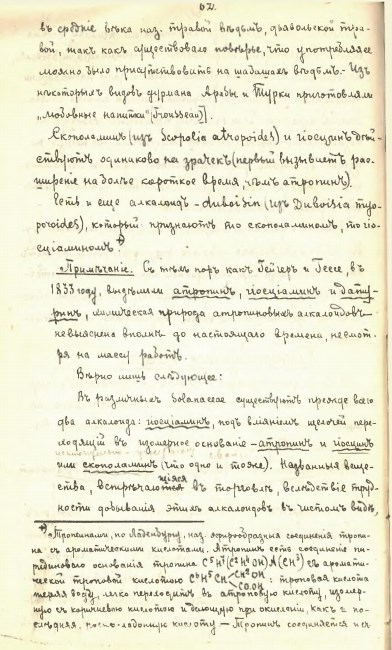 62.
въ средніе вѣка наз. травой вѣдьмъ, дьявольской тра-
вой, такъ какъ существовало повѣрье, что употребляя ее
можно было присутствовать на шабашахъ вѣдьмъ. - Изъ
нѣкоторыхъ видовъ дурмана Арабы и Турки приготовляли
„любовные напитки" (Trousseau)].
Скополаминъ (изъ Scopolia atropoides) и гіосцинъ дѣй-
ствуютъ одинаково на зрачекъ (первый вызываетъ рас-
ширеніе на болѣе короткое время, чѣмъ атропинъ).
Есть и еще алкалоидъ - duboisin (изъ Duboisia myo-
poroides), который признаютъ то скополаминомъ, то гіо-
сціаминомъ. *)
"Примѣчаніе. Съ тѣхъ поръ какъ Гейгеръ и Гессе, въ
1833 году, выдѣлили атропинъ, гіосціаминъ и дату-
ринъ, химическая природа атропиновыхъ алкалоидовъ
невыяснена вполнѣ до настоящаго времени, несмот-
ря на массу работъ.
Вѣрно лишь слѣдующее:
Въ различныхъ Solanaceae существуютъ прежде всего
два алкалоида: гіосціаминъ, подъ вліяніемъ щелочей пере-
ходящій въ изомерное основаніе - атропинъ и гіосцинъ
или скополаминъ (что одно и тоже). Названныя веще-
ства, встрѣчающіяся въ торговлѣ, вслѣдствіе труд-
ности добыванія этихъ алкалоидовъ въ чистомъ видѣ,
*) "Тропеинами, по Ладенбургу, наз. эфирообразныя соединенія тропи-
на съ ароматическими кислотами. Атропинъ есть соединеніе пи-
ридиноваго основанія тропина C⁵H⁷(C²H⁴OH)N(CH³) съ аромати-
ческой троповой кислотою C⁶H⁵CH<CH²OH CO.OH : троповая кислота
теряя воду, легко переходитъ въ атроповую кислоту, изомер-
ную съ коричневою кислотою и дающую при окисленіи, какъ и по-
слѣдняя, бензойную кислоту - Тропинъ соединяется и съ